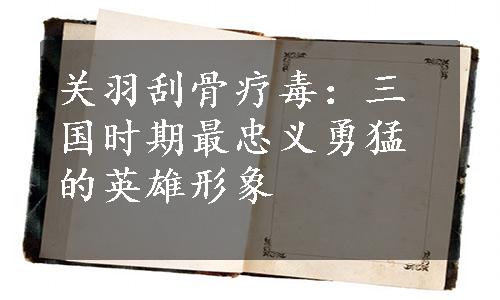 关羽刮骨疗毒：三
国时期最忠义勇猛
的英雄形象